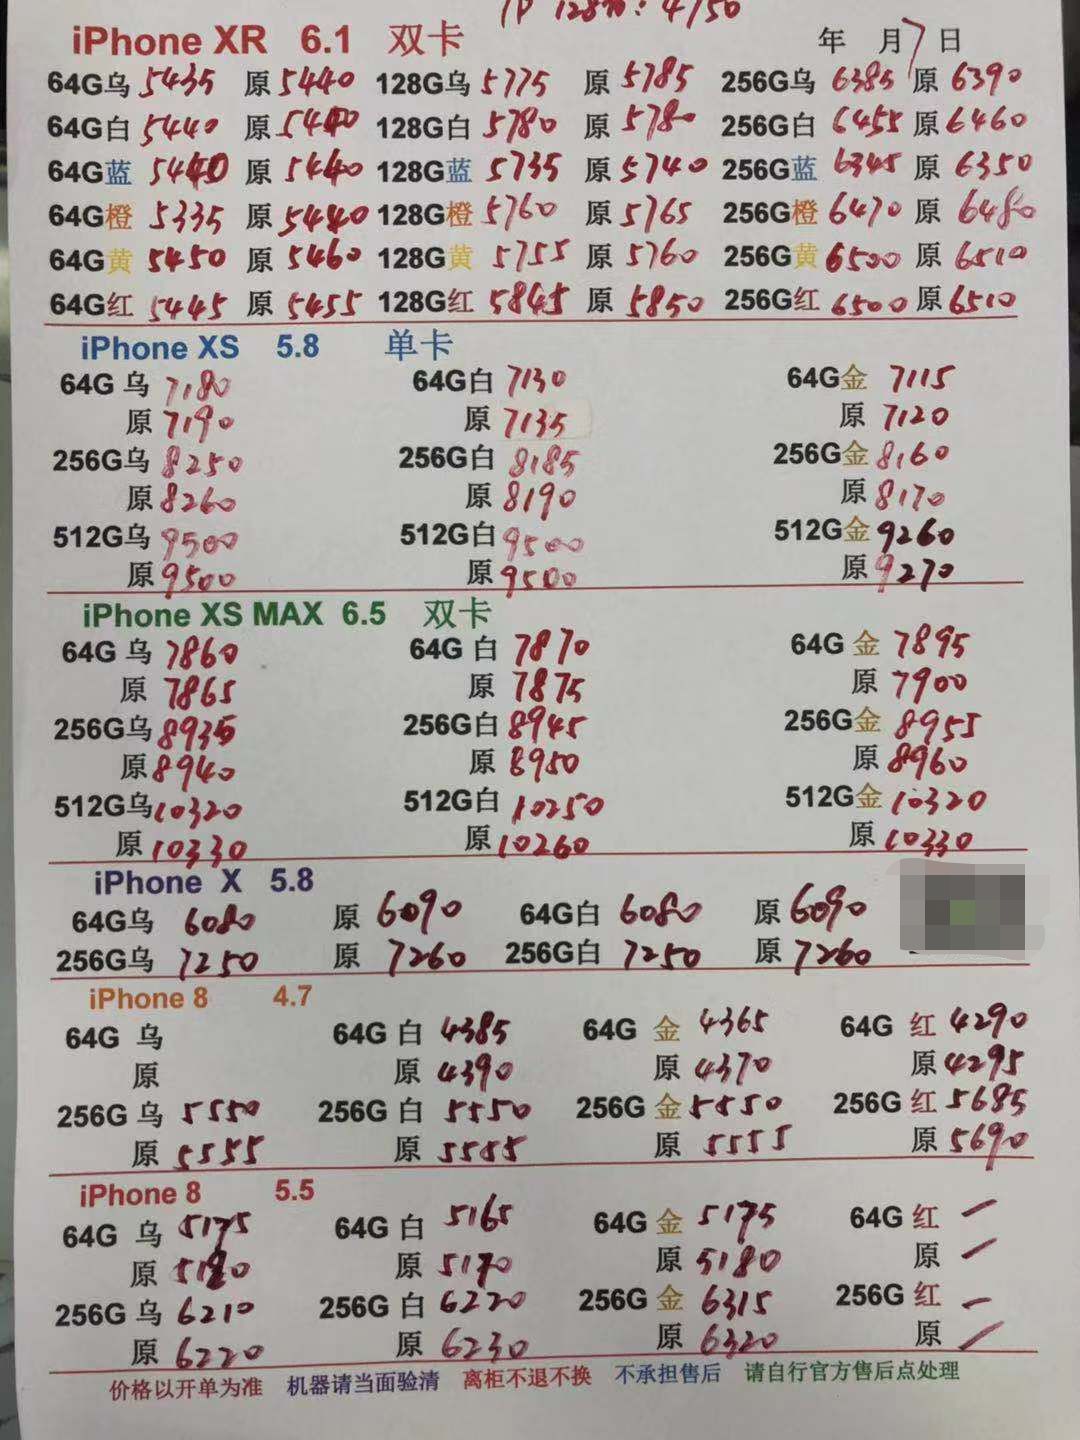 128G: 4750
iPhone XR 6.1 双卡 年 月7日
64G乌 5435 原 5440 128G乌 5775 原 5785 256G乌 6385 原 6390
64G白 5440 原 5440 128G白 5780 原 5780 256G白 6455 原 6460
64G蓝 5440 原 5440 128G蓝 5735 原 5740 256G蓝 6345 原 6350
64G橙 5335 原 5440 128G橙 5760 原 5765 256G橙 6470 原 6480
64G黄 5450 原 5460 128G黄 5755 原 5760 256G黄 6500 原 6510
64G红 5445 原 5455 128G红 5845 原 5850 256G红 6500 原 6510
iPhone XS 5.8 单卡
64G 乌 7180 64G白 7130 64G金 7115
原 7190 原 7135 原 7120
256G乌 8250 256G白 8185 256G金 8160
原 8260 原 8190 原 8170
512G乌 9500 512G白 9500 512G金 9260
原 9500 原 9500 原 9270
iPhone XS MAX 6.5 双卡
64G 乌 7860 64G 白 7870 64G 金 7895
原 7865 原 7875 原 7900
256G乌 8935 256G白 8945 256G金 8955
原 8940 原 8950 原 8960
512G乌 10320 512G白 10250 512G金 10320
原 10330 原 10260 原 10330
iPhone X 5.8
64G乌 6080 原 6090 64G白 6080 原 6090
256G乌 7250 原 7260 256G白 7250 原 7260
iPhone 8 4.7
64G 乌 64G 白 4385 64G 金 4365 64G 红 4290
原 原 4390 原 4370 原 4295
256G 乌 5550 256G 白 5550 256G 金 5550 256G 红 5685
原 5555 原 5555 原 5555 原 5690
iPhone 8 5.5
64G 乌 5175 64G 白 5165 64G 金 5175 64G 红 一
原 5180 原 5170 原 5180 原 一
256G 乌 6210 256G 白 6220 256G 金 6315 256G 红 一
原 6220 原 6230 原 6320 原 一
价格以开单为准 机器请当面验清 离柜不退不换 不承担售后 请自行官方售后点处理